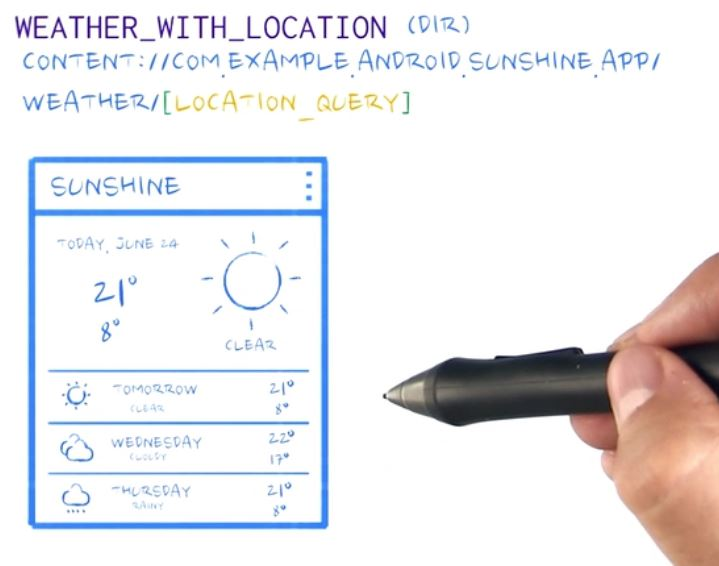 WEATHER_WITH_LOCATION (DIR)
CONTENT://COM.EXAMPLE.ANDROID.SUNSHINE.APP/
WEATHER/[LOCATION_QUERY]
SUNSHINE
TODAY, JUNE 24
21°
8°
CLEAR
TOMORROW 21°
CLEAR 8°
WEDNESDAY 22°
CLOUDY 17°
THURSDAY 21°
RAINY 8°